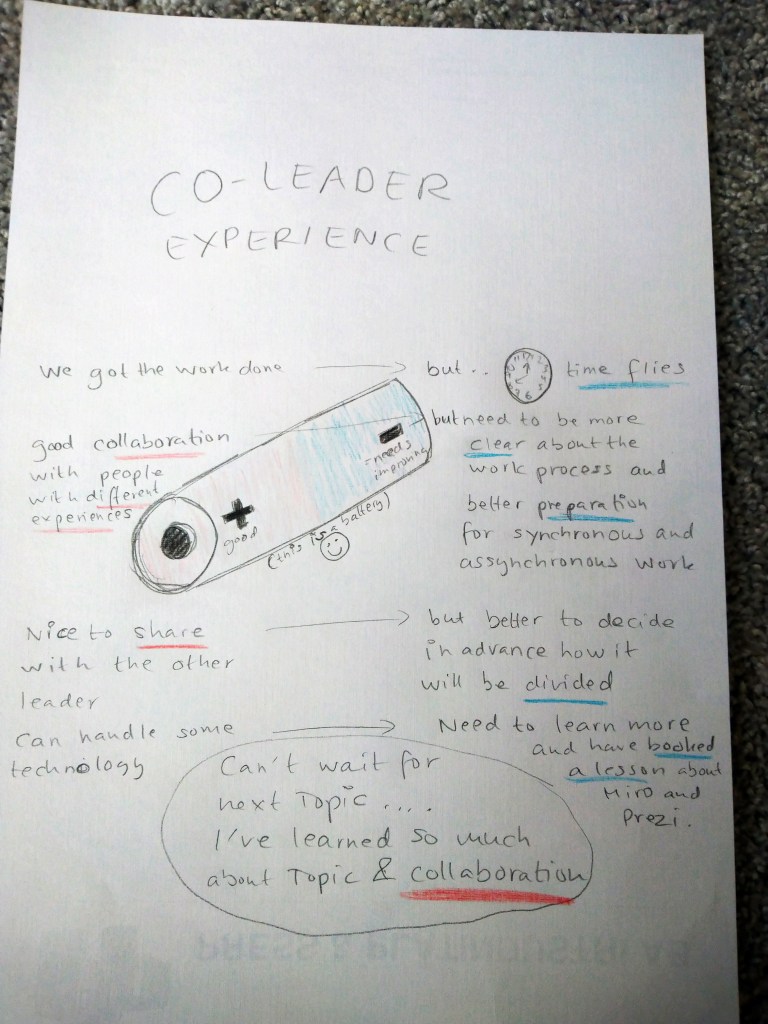 CO-LEADER
EXPERIENCE
We got the work done
but..
12
time flies
good collaboration
with people
with different
experiences
but need to be more
clear about the
work process and
better preparation
for synchronous and
assynchronous work
+
good
-
=needs
improving
(this is a battery)
Nice to share
with the other
leader
but better to decide
in advance how it
will be divided
Can handle some
technology
Need to learn more
and have booked
a lesson about
Miro and
Prezi.
Can't wait for
next Topic ....
I've learned so much
about Topic & collaboration
PRESS & PLATINDUSTRI AB